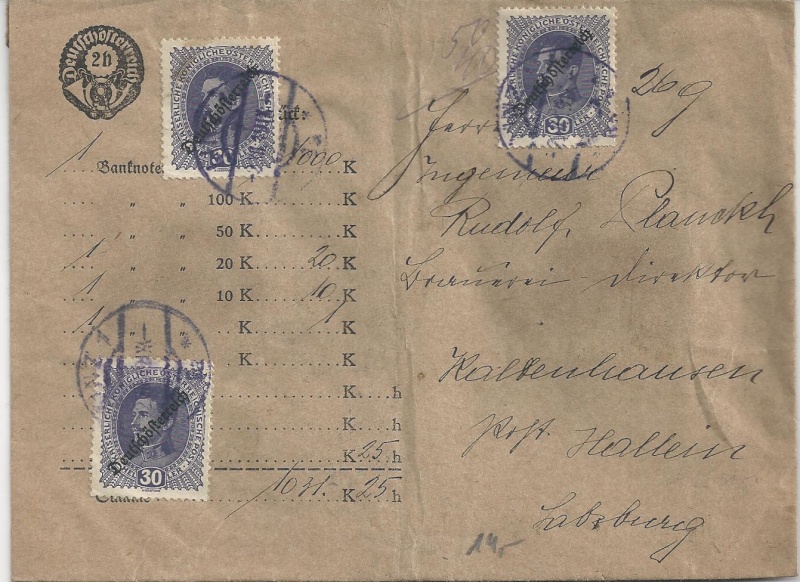 Deutschösterreich
2 h
KAISERLICHE KÖNIGLICHE ÖSTERREICHISCHE POST
Deutschösterreich
30
KAISERLICHE KÖNIGLICHE ÖSTERREICHISCHE POST
Deutschösterreich
30
26 g
ück:
1 Banknote 1000 K
" " 100 K K
" " 50 K K
1 " " 20 K 20 K
1 " " 10 K 10 K
1 " " K 1 K
" " K K
K h
K h
K 25 h
1031.- K 25 h
LINZ 1
KAISERLICHE KÖNIGLICHE ÖSTERREICHISCHE POST
Deutschösterreich
30
Herrn
Ingenieur
Rudolf Planckh
Brauerei-Direktor
Kaltenhausen
Post Hallein
Salzburg
14,-